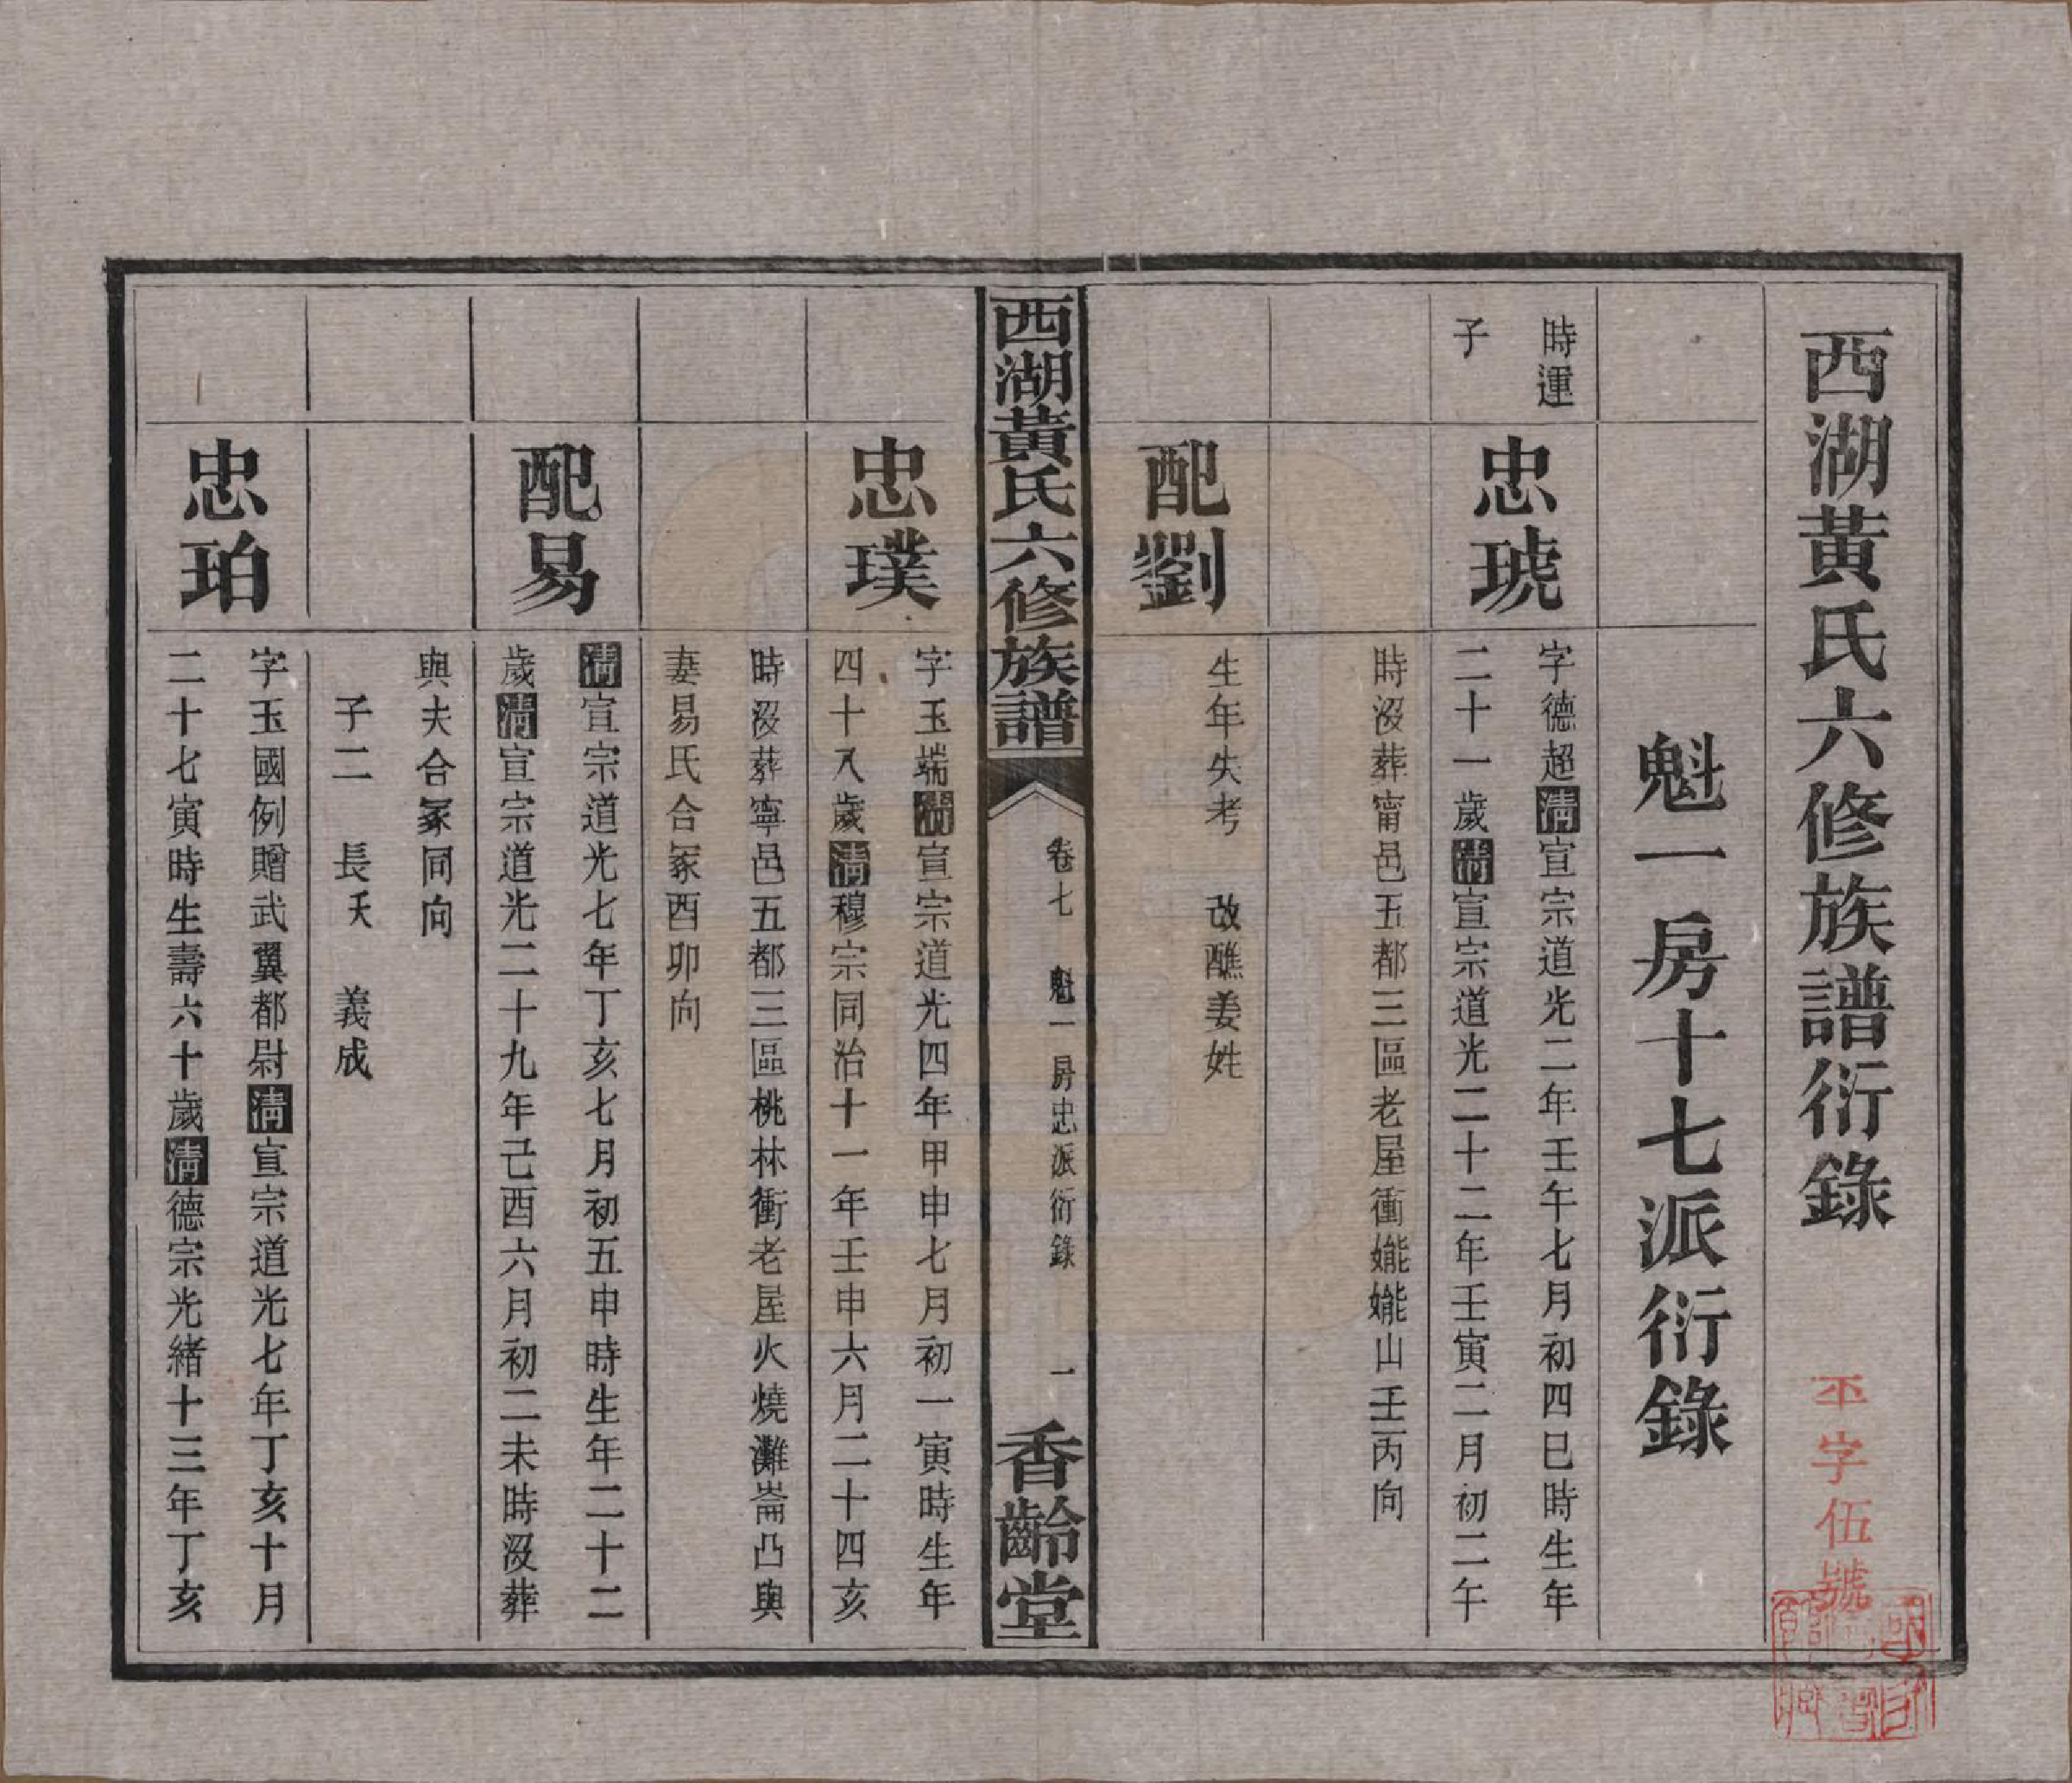 西湖黃氏六修族譜衍錄
平字伍號
魁一房十七派衍錄
時運
子
忠琥
字德超清宣宗道光二年壬午七月初四巳時生年
二十一歲清宣宗道光二十二年壬寅二月初二午
時沒葬甯邑五都三區老屋衝㜮㜮山壬丙向
配劉
生年失考　改醮姜姓
西湖黃氏六修族譜
卷七　魁一房忠派衍錄　一
香齡堂
忠璞
字玉端清宣宗道光四年甲申七月初一寅時生年
四十八歲清穆宗同治十一年壬申六月二十四亥
時沒葬寧邑五都三區桃林衝老屋火燒灘崙凸與
妻易氏合冢酉卯向
配易
清宣宗道光七年丁亥七月初五申時生年二十二
歲清宣宗道光二十九年己酉六月初二未時沒葬
與夫合冢同向
子二　長夭　義成
忠珀
字玉國例贈武翼都尉清宣宗道光七年丁亥十月
二十七寅時生壽六十歲清德宗光緒十三年丁亥